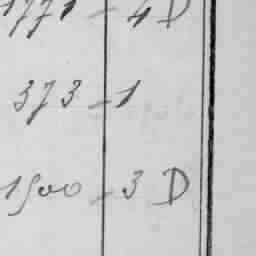 1771 - 4 D
373 - 1
1500 - 3 D